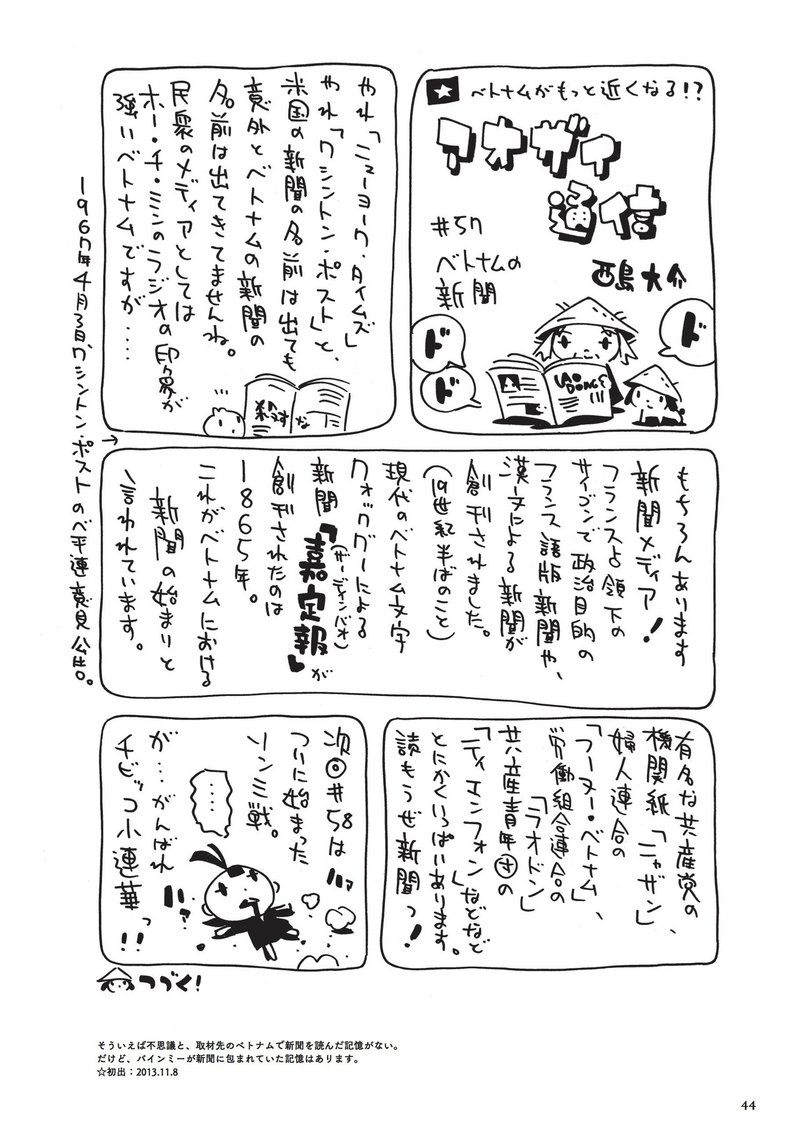 ベトナムがもっと近くなる!?
アオザイ
通信
#57
ベトナムの
新聞
西島大介
ド
ド
ド
LAO
DONG
やれ「ニューヨーク・タイムズ」
やれ「ワシントン・ポスト」と、
米国の新聞の名前は出ても
意外とベトナムの新聞の
名前は出てきてませんね。
民衆のメディアとしては
ホー・チ・ミンのラジオの印象が
強いベトナムですが・・・・
殺すな
→
1967年4月3日、ワシントン・ポストのベ平連意見広告。
もちろんあります
新聞メディア!
フランス占領下の
サイゴンで政治目的の
フランス語版新聞や、
漢文による新聞が
創刊されました。
(19世紀半ばのこと)
現代のベトナム文字
クォックグーによる
新聞「嘉定報」が
(ザーディンバオ)
創刊されたのは
1865年。
これがベトナムにおける
新聞の始まりと
言われています。
有名な共産党の
機関紙「ニャザン」
婦人連合の
「フーヌー・ベトナム」、
労働組合連合の
「ラオドン」
共産青年団の
「ティエンフォン」などなど
とにかくいっぱいあります。
読もうぜ新聞っ!
次回#58は
ついに始まった
ソンミ戦。
・・・・
が・・・がんばれ
チビッコ小連華
っ!!
つづく!
そういえば不思議と、取材先のベトナムで新聞を読んだ記憶がない。
だけど、バインミーが新聞に包まれていた記憶はあります。
☆初出:2013.11.8
44